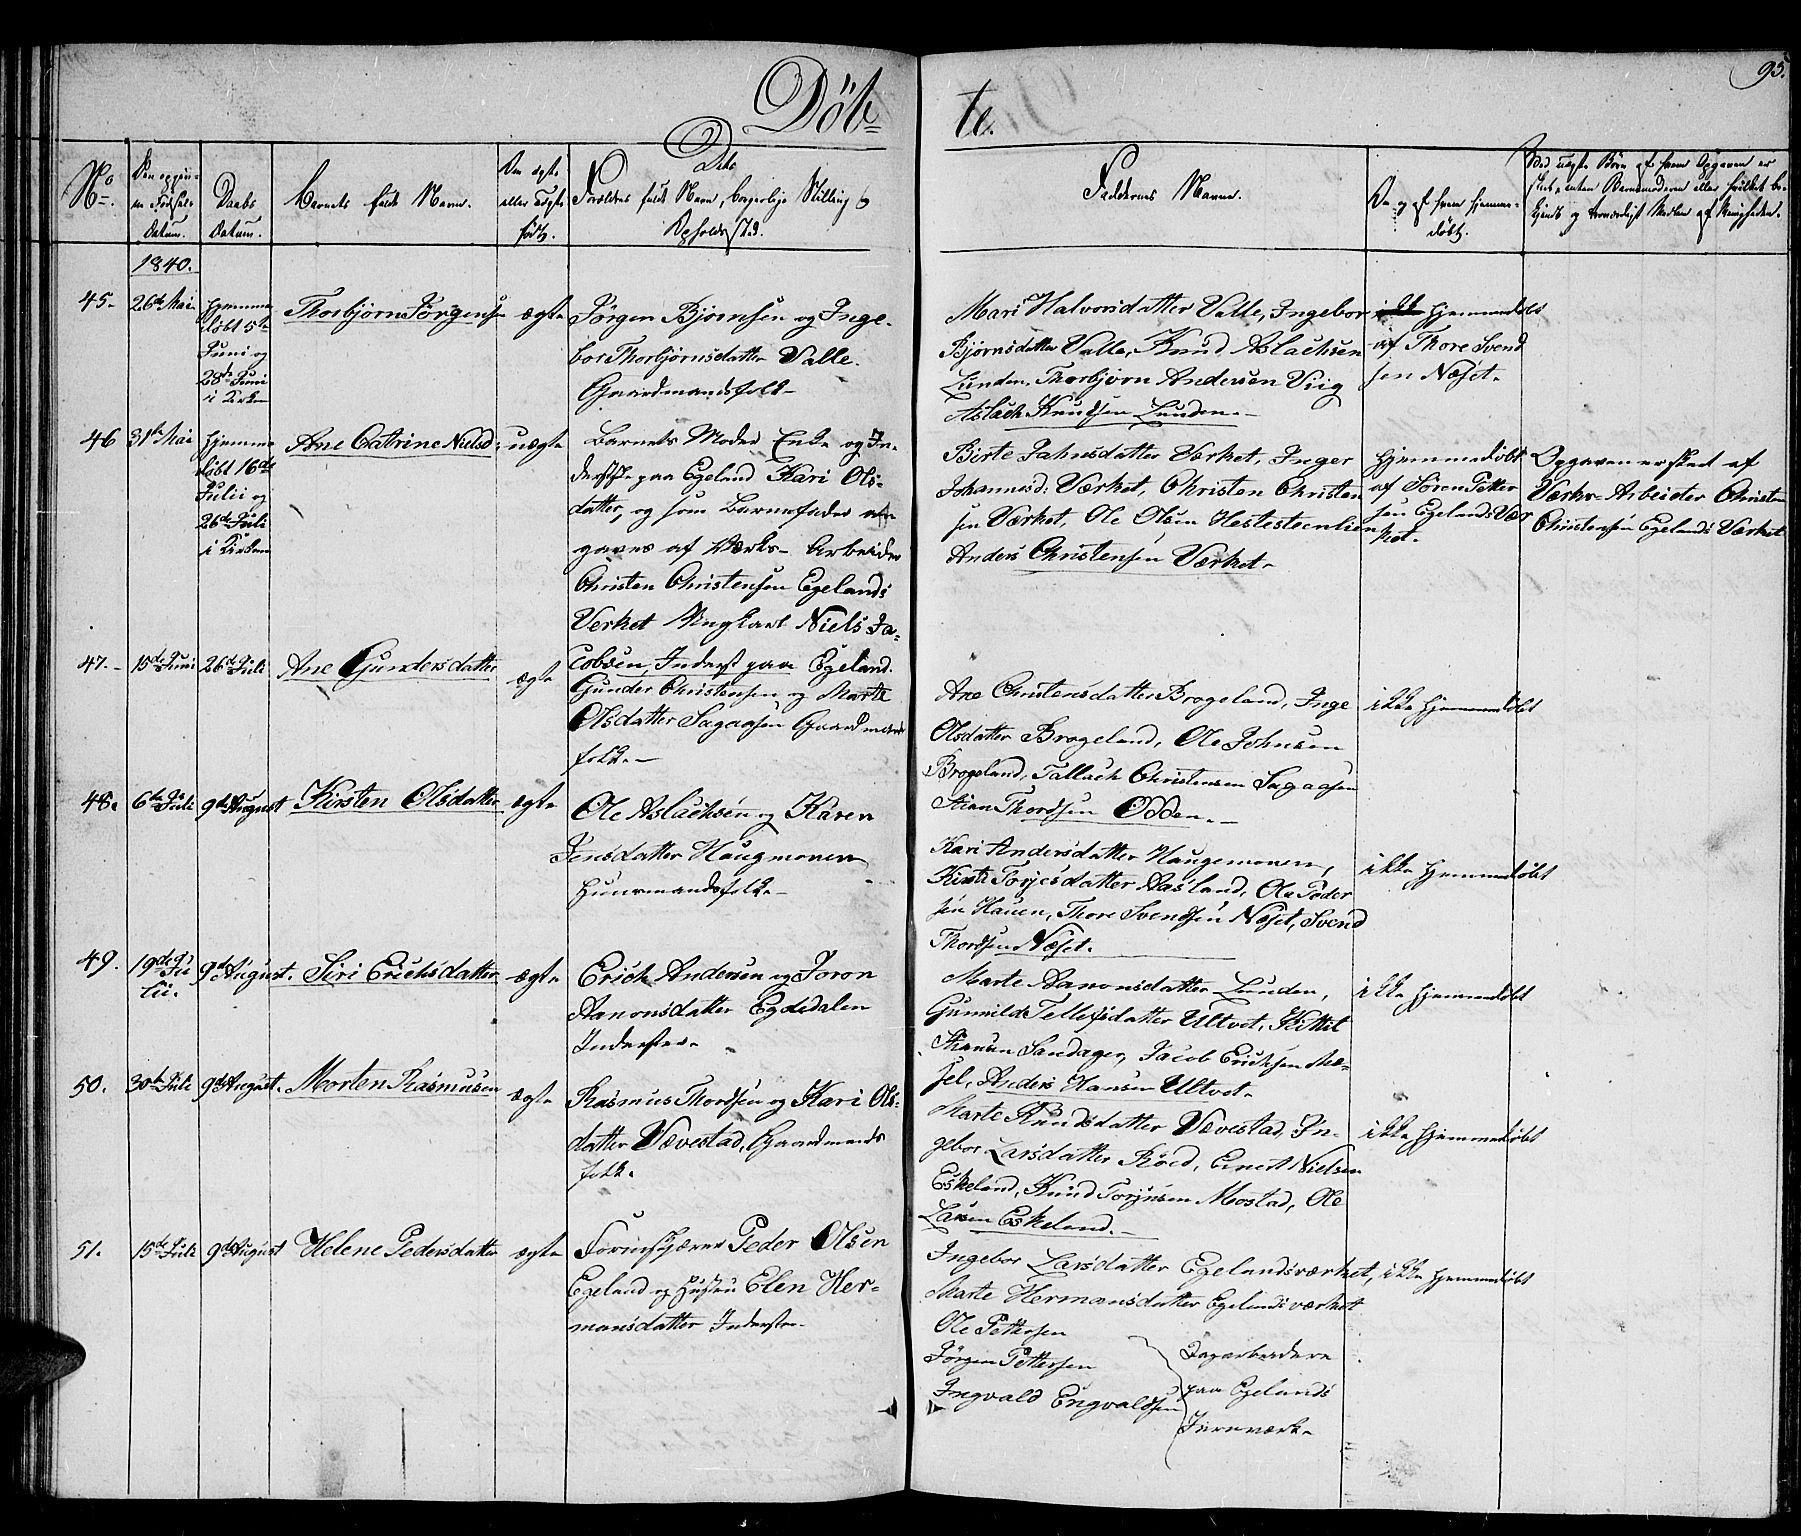 Döb= te. 95.
No. Den opgivne Fødsels Datum. Daabs Datum. Barnets fulde Navn. Om ægte eller uægte født. Dets Forældres fulde Navn, borgerlige Stilling og Opholdssted. Faddernes Navne. Om og af hvem hjemmedöbt. Ved uægte Börn af hvem Opgaven er skeet, enten Barnemoderen eller hvilket bekjendt og troværdigt Medlem af Menigheden.
1840.
45. 26de Mai hjemmedöbt 5te Juni og 28de Juni i Kirken Thorbjörn Jörgens. ægte
Jörgen Bjornsen og Inge-
bor Thorbjörnsdatter Valle.
Gaardmandsfolk-
Mari Halvorsdatter Valle, Ingebor
Bjørnsdatter Valle, Knud Aslachsen
Lunden, Thorbjörn Andersen Viig
Aslach Knudsen Lunden.-
ikke hjemmedöbt
af Thore Svend
sen Næset.
46 31te Mai hjemmedöbt 16de Julii og 26de Juli i Kirken Ane Catrine Nielsd: uægte
Barnets Moder Enke og In-
derste paa Egeland Kari Ols-
datter, og som Barnefader
gaves af Værks- Arbeider
Christen Christensen Egelands
Verket Ungkarl Niels Ja-
cobsen, Inderst paa Egeland.
Birte Jahnsdatter Værket, Inger
Johannesd: Værket, Christen Christen
sen Værket, Ole Olsen Hestesteenlien
Anders Christensen Værket.
hjemmedöbt
af Sören Petter
sen Egelands Vær
ket.
Opgaven er skeet af
Værks-Arbeider Christen
Christensen Egelands Værket
47.- 15de Juni 26de Juli Ane Gundersdatter ægte
Gunder Christensen og Marte
Olsdatter Sagaasen Gaardmands
folk.-
Ane Christensdatter Brogeland, Inge
Olsdatter Brogeland, Ole Johnsen
Brogeland, Tallach Christensen Sagaasen
Thordsen Odden.-
ikke hjemmedöbt
48. 6te Juli 9de August Kirsten Olsdatter ægte
Ole Aslachsen og Karen
Jensdatter Haugmonen
Huusmandsfolk.-
Kari Andersdatter Haugemonen,
Kirsti Torjesdatter Aasland, Ole Peder
sen Hauen, Thore Svendsen Næset, Svend
Thordsen Næset.
ikke hjemmedöbt
49. 19de Ju
lii. 9de August. Siri Erichsdatter ægte
Erich Andersen og Joron
Aanonsdatter Egdedalen
Inderster.
Marte Aanonsdatter Lunden,
Gunnild Tellefsdatter Ultvet, Kittil
Sandager, Jacob Ericksen
Anders Hansen Ultvet.
ikke hjemmedöbt
50. 30te Juli 9de August. Morten Rasmusen ægte
Rasmus Thordsen og Kari Ols-
datter Vævestad, Gaardmands
folk.
Marte Knudsdatter Vævestad, In-
gebor Larsdatter Röed, Ernst Nielsen
Eskeland, Knud Torjusen Mostad, Ole
Larsen Eskeland.-
ikke hjemmedöbt
51. 15de Juli 9de August Helene Pedersdatter ægte
Peder Olsen
Egeland og Hustru Elen Her-
mansdatter Inderster.
Ingebor Larsdatter Egelandsværket,
Marte Hermansdatter Egelandsværket
Ole Pettersen
Jörgen Pettersen
Ingvald Engvaldsen
Dagarbeidere
paa Egelands
Jernværk.
ikke hjemmedöbt